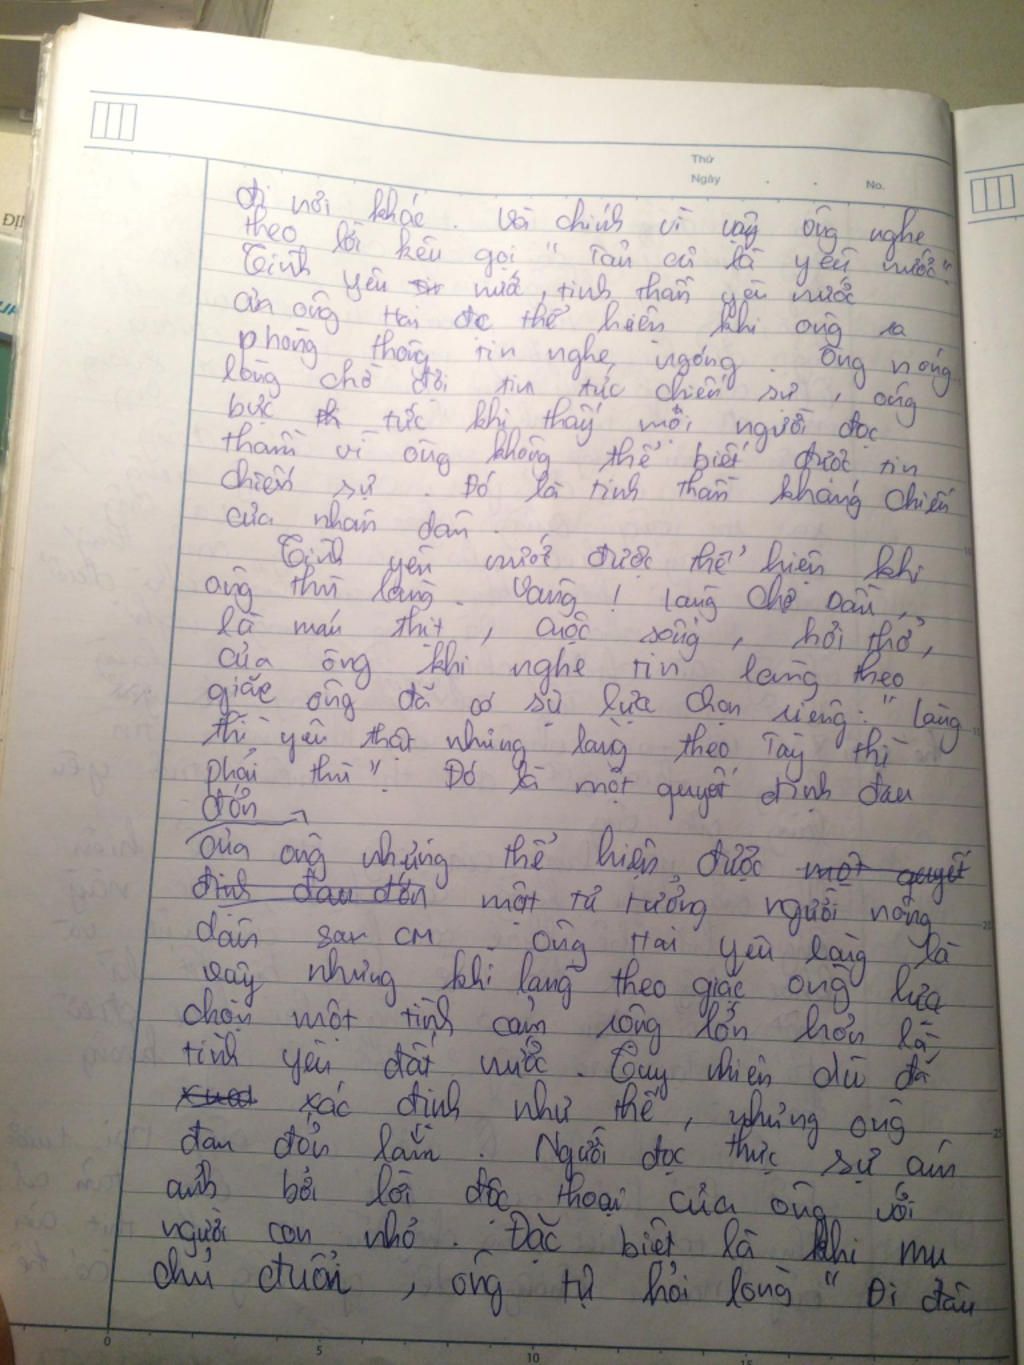 Thứ
Ngày . . No.
đi nơi khác. Và chính vì vậy ông nghe
theo lời kêu gọi " Tản cư là yêu nước".
Tình yêu nước, tinh thần yêu nước
của ông Hai đc thể hiện khi ông ra
phòng thông tin nghe ngóng. Ông nóng
lòng chờ đợi tin tức chiến sự, ông
bực tức khi thấy mọi người đọc
thầm vì ông không thể biết được tin
chiến sự. Đó là tinh thần kháng chiến
của nhân dân.
Tình yêu nước được thể hiện khi
ông thù làng. Vâng! Làng chợ Dầu,
là máu thịt, cuộc sống, hơi thở,
của ông khi nghe tin làng theo
giặc ông đã có sự lựa chọn riêng: " Làng
thì yêu thật nhưng làng theo Tây thì
phải thù". Đó là một quyết định đau
đớn
của ông nhưng thể hiện được một quyết
định đau đớn một tư tưởng người nông
dân sau CM. Ông Hai yêu làng là
vậy nhưng khi làng theo giặc ông lựa
chọn một tình cảm rộng lớn hơn là
tình yêu đất nước. Tuy nhiên dù đã
xác định như thế, nhưng ông
đau đớn lắm. Người đọc thực sự ám
ảnh bởi lời độc thoại của ông với
người con nhỏ. Đặc biệt là khi mụ
chủ đuổi, ông tự hỏi lòng " Đi đâu
0 5 10 15